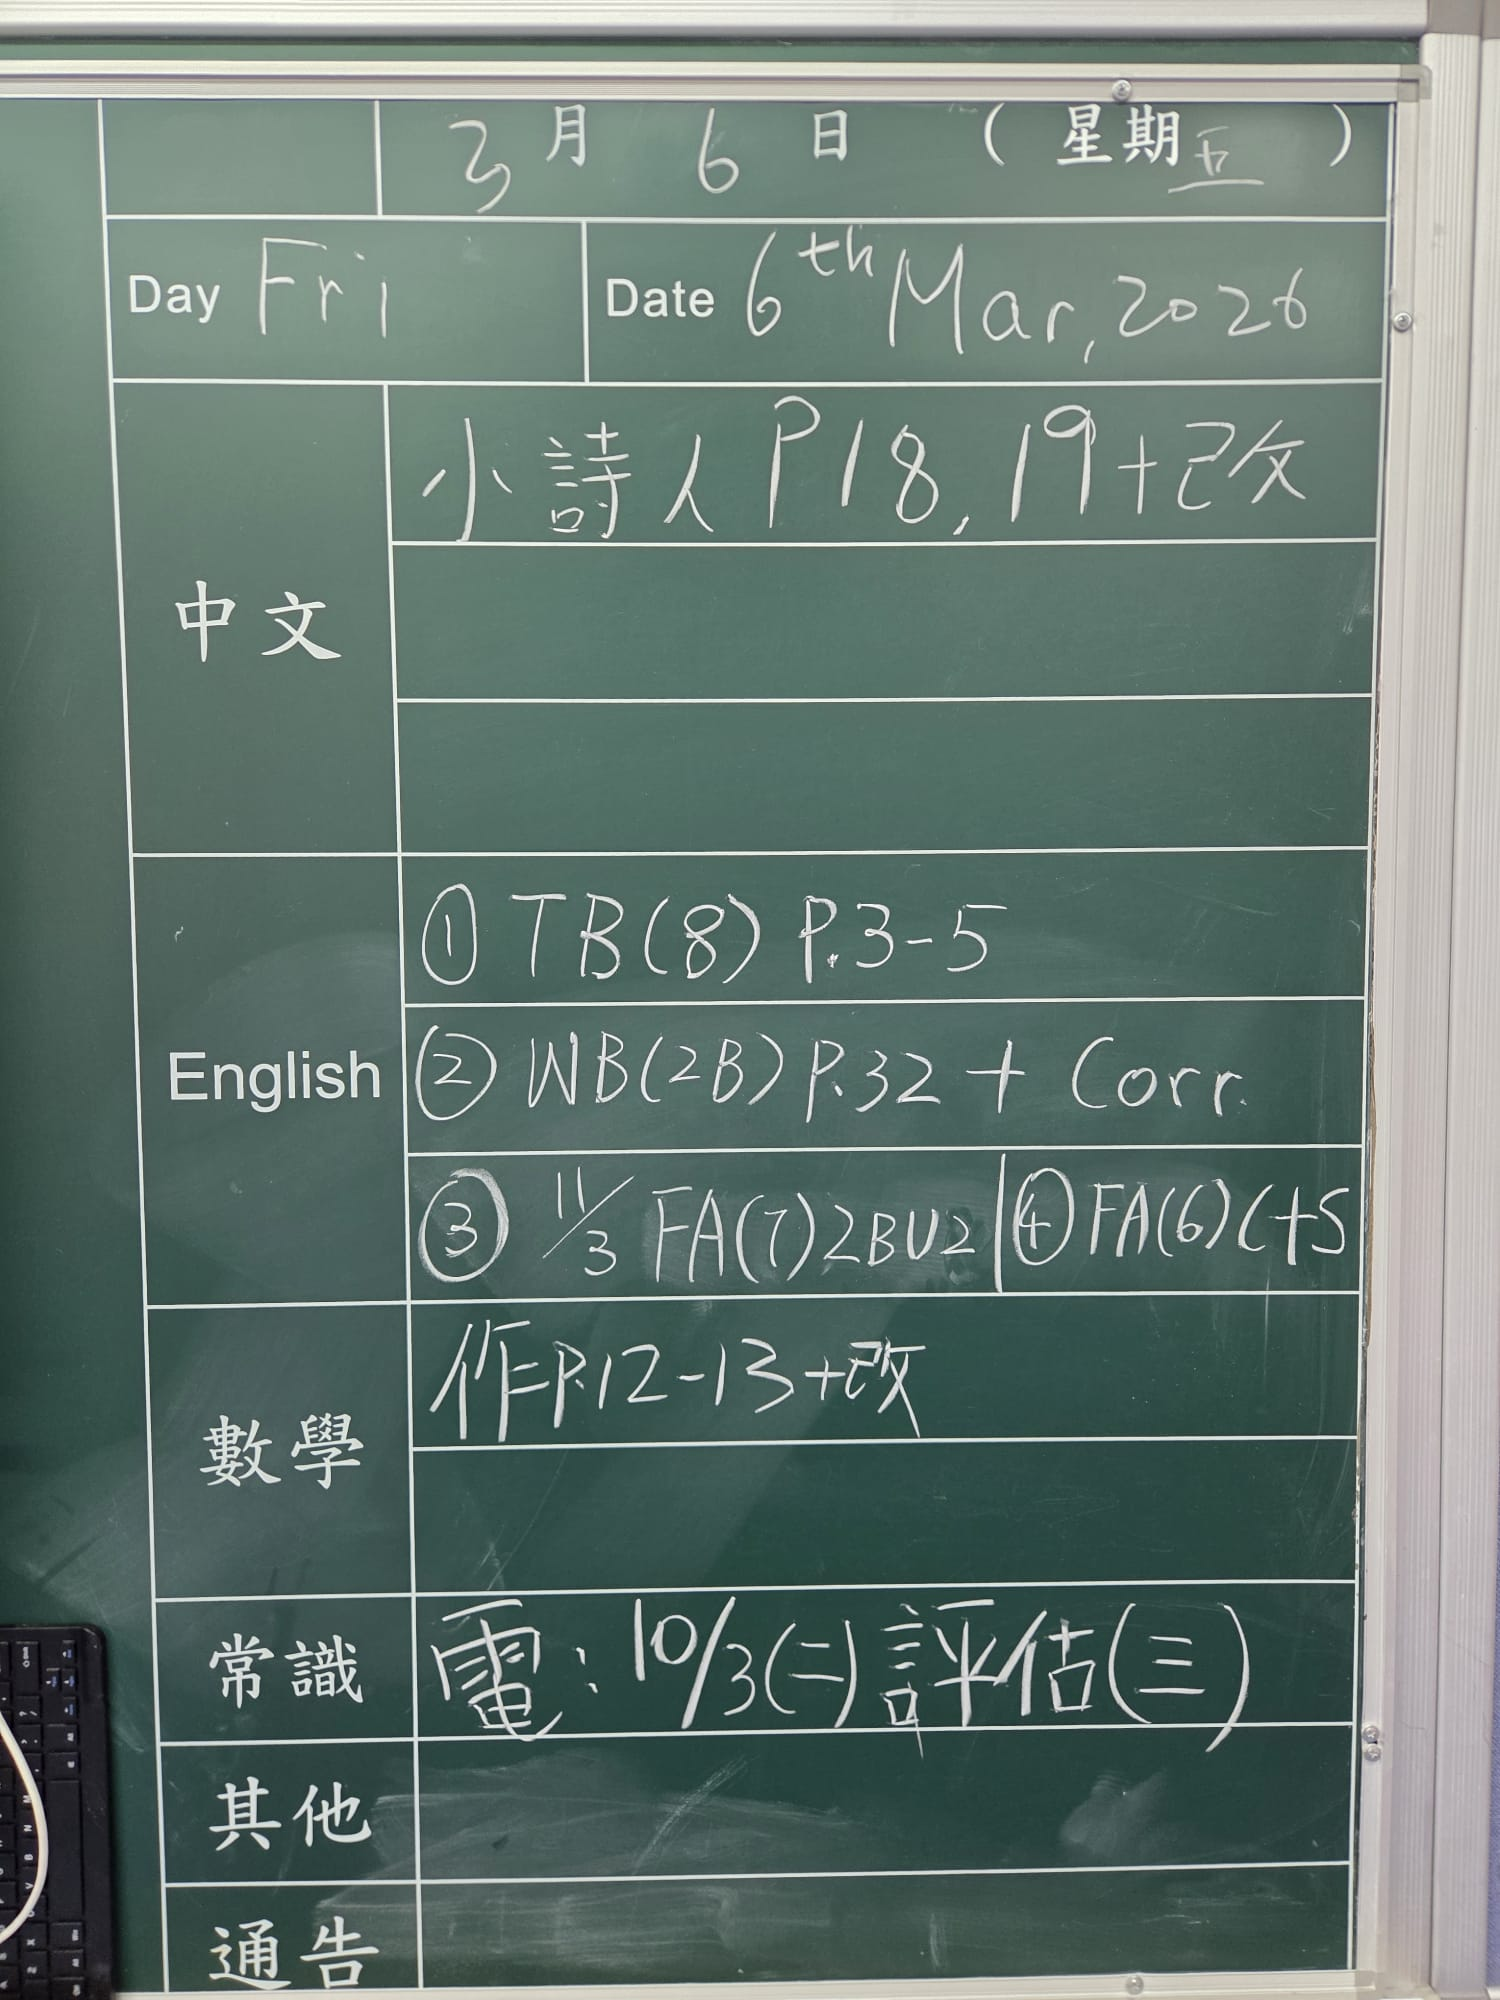 3月6日(星期五)
Day Fri Date 6th Mar, 2026
中文 小詩人P18,19+改
English ① TB(8) P.3-5
② WB(2B) P.32 + Corr.
③ 11/3 FA(7)2BU2 | ④ FA(6)C+S
數學 作P.12-13+改
常識 電:10/3(二)評估(三)
其他
通告